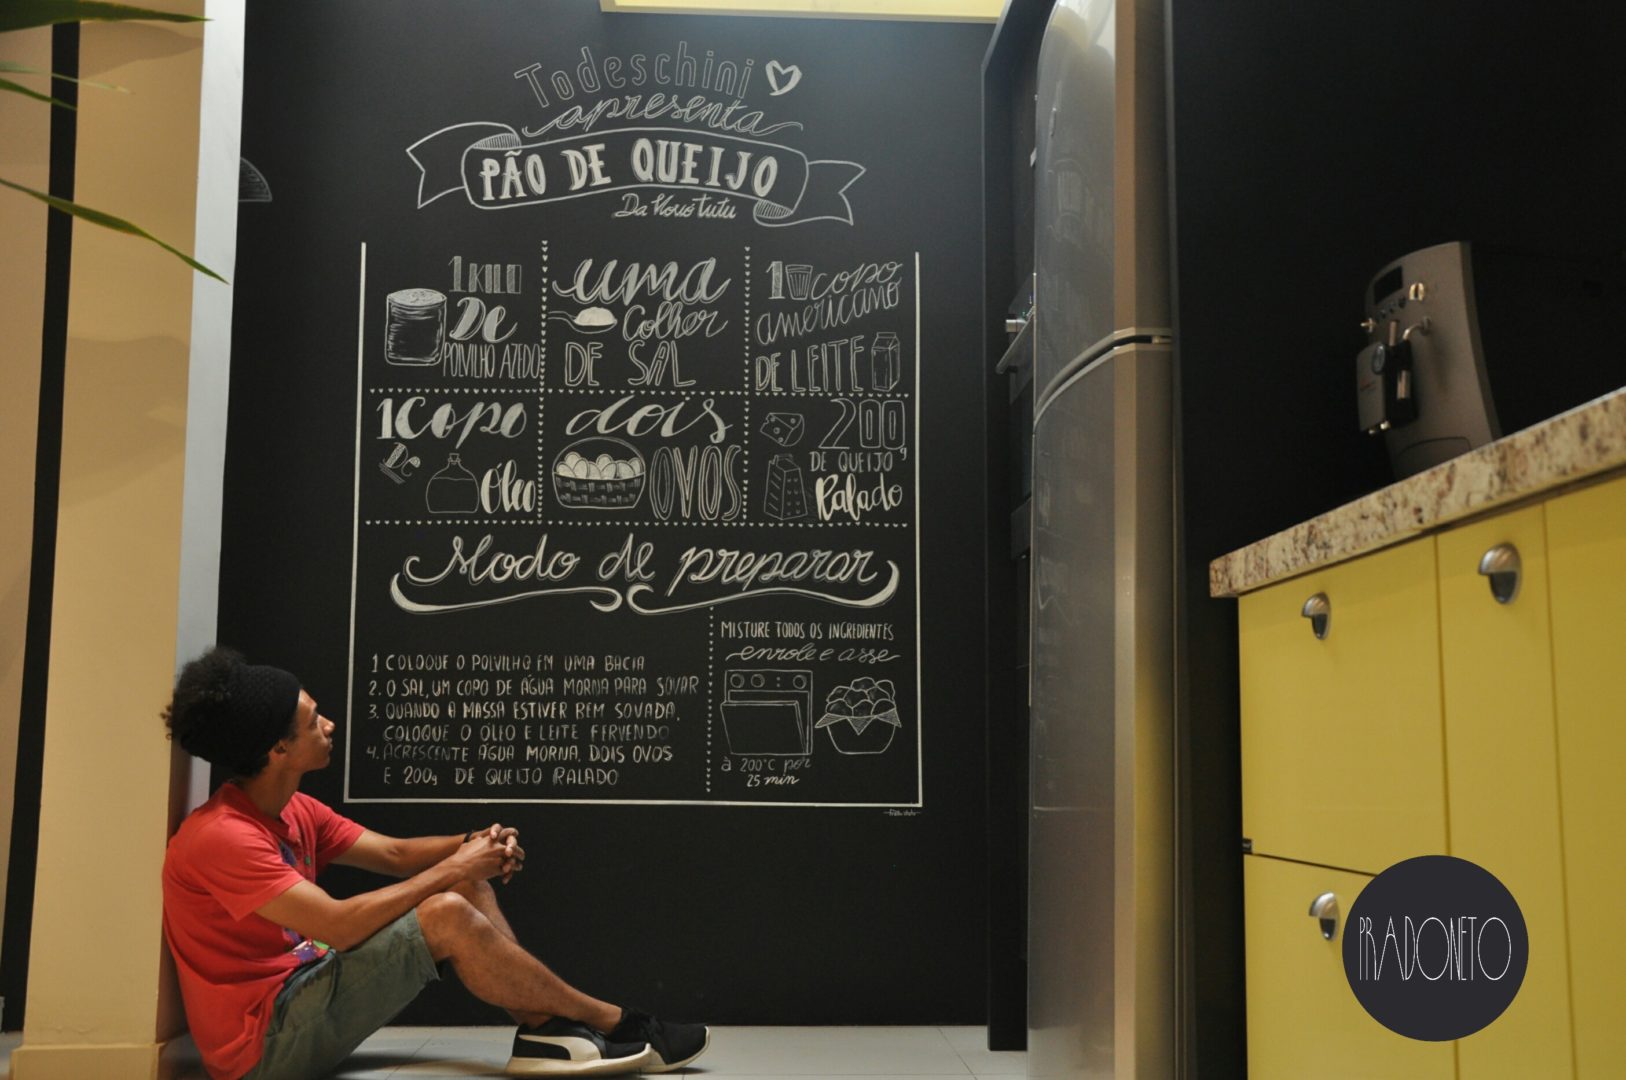 Todeschini
apresenta
PÃO DE QUEIJO
Da Vovó tutu
1 KILO
DE
POLVILHO AZEDO
uma
Colher
DE SAL
1 copo
americano
DE LEITE
1 Copo
De
Óleo
dois
OVOS
200g
DE QUEIJO
Ralado
Modo de preparar
1 COLOQUE O POLVILHO EM UMA BACIA
2. O SAL, UM COPO DE ÁGUA MORNA PARA SOVAR
3. QUANDO A MASSA ESTIVER BEM SOVADA,
COLOQUE O ÓLEO E LEITE FERVENDO
4. ACRESCENTE ÁGUA MORNA, DOIS OVOS
E 200g DE QUEIJO RALADO
MISTURE TODOS OS INGREDIENTES
enrole e asse
à 200°C por
25 min
PRADONETO